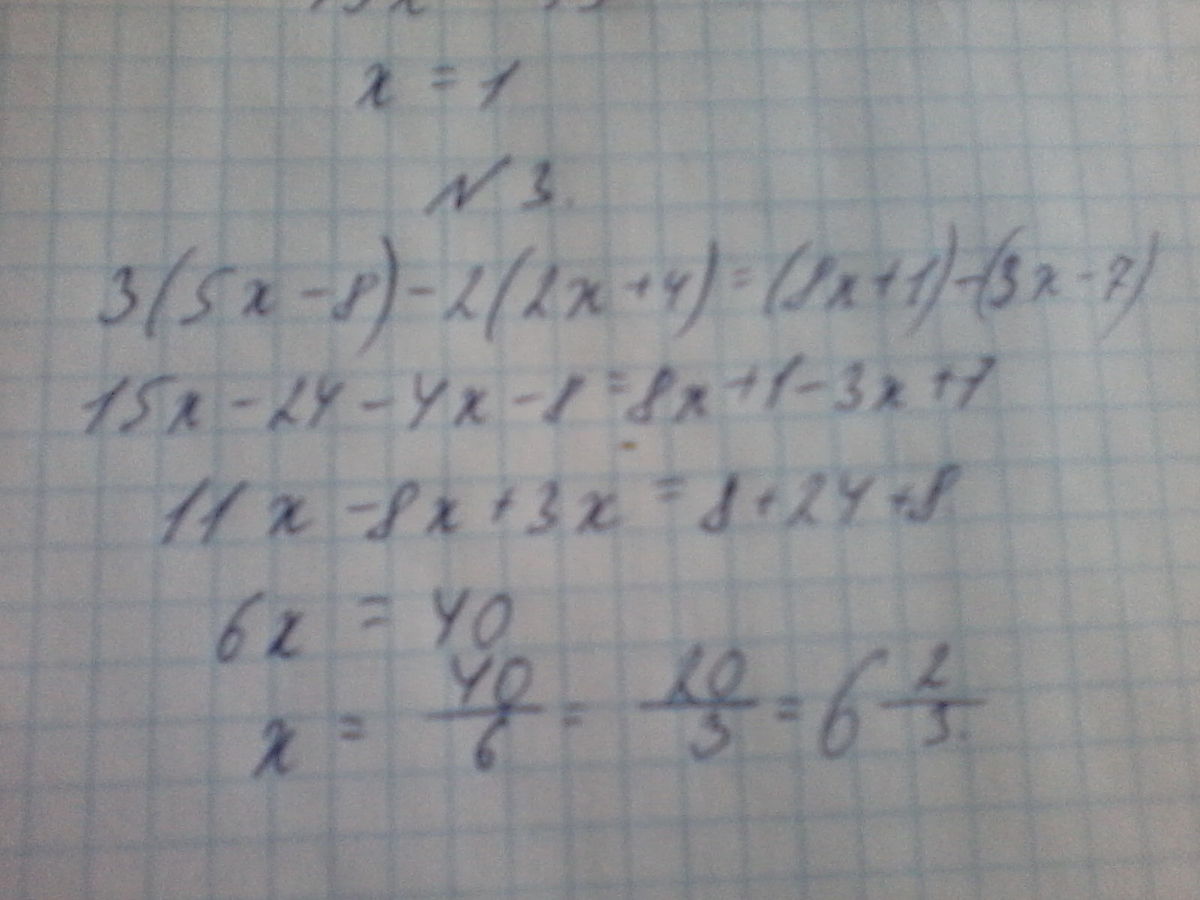 x = 1
№3.
3(5x-8)-2(2x+4)=(8x+1)-(3x-7)
15x-24-4x-8=8x+1-3x+7
11x-8x+3x=8+24+8
6x = 40
x = 40/6 = 20/3 = 6 2/3.